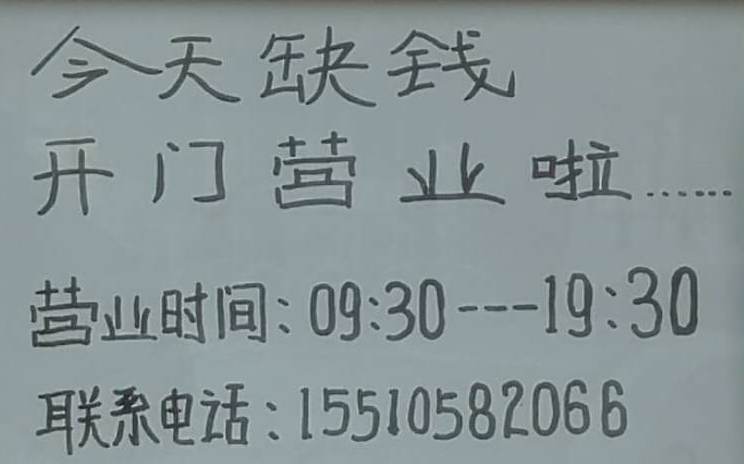 今天缺钱
开门营业啦......
营业时间:09:30---19:30
联系电话:15510582066